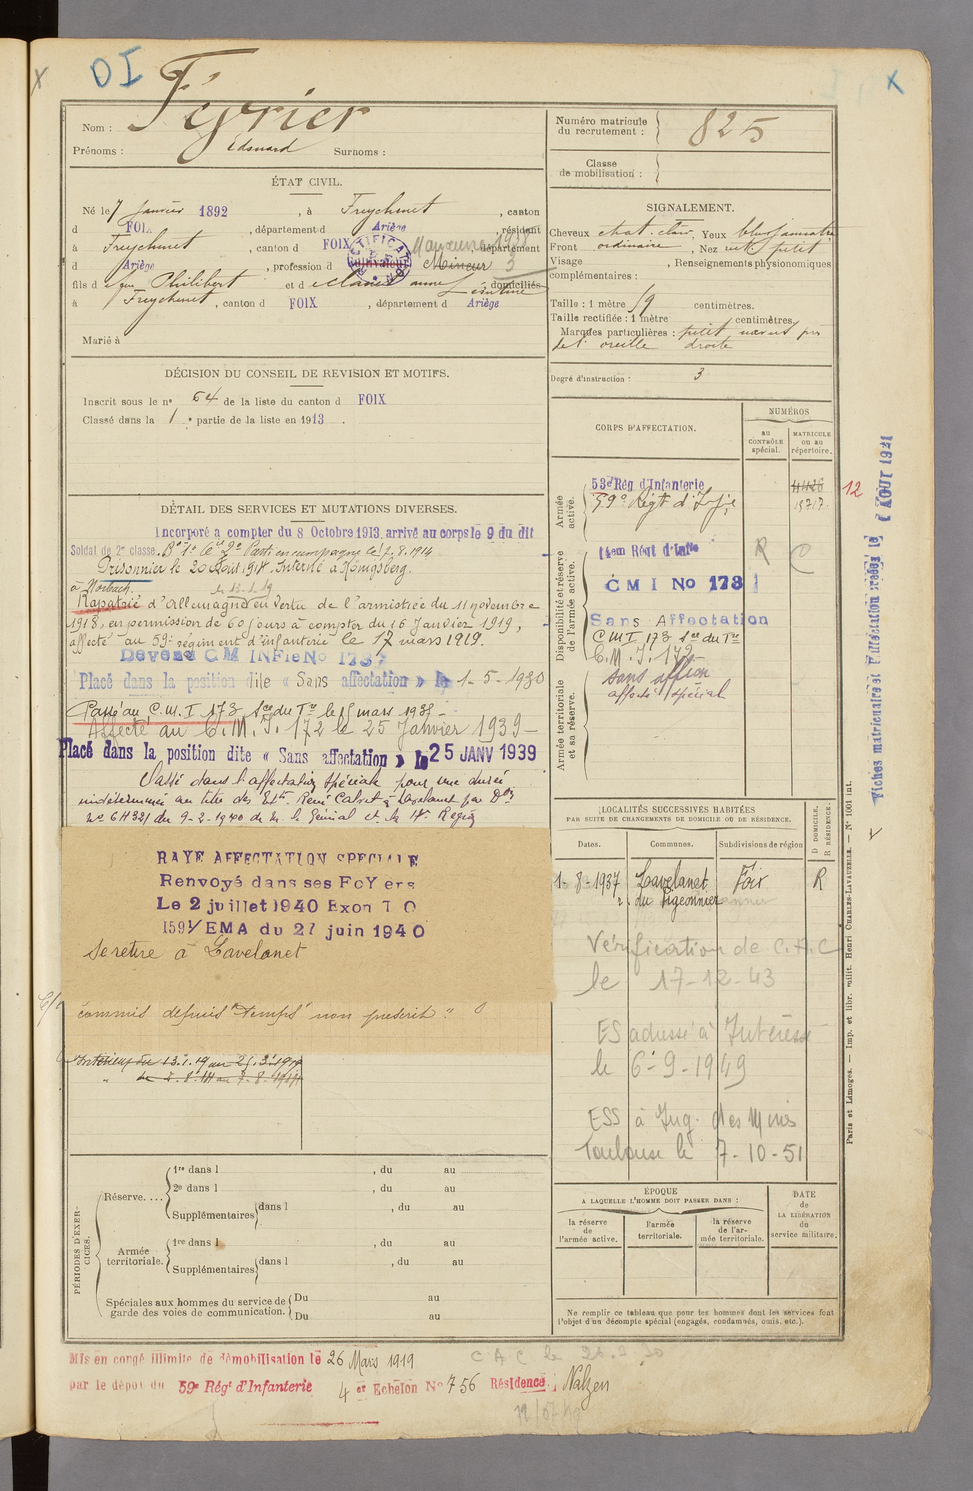 OI
Février
Nom :
Prénoms : Edouard Surnoms :
ÉTAT CIVIL.
Né le 7 Janvier 1892 , à Freychenet , canton
d FOIX , département d Ariège , résident
à Freychenet , canton d FOIX , département
d Ariège , profession d Cultivateur Mineur
RECTIFICATION
fils d e feu Philibert et d e
domiciliés
à Freychenet , canton d FOIX , département d Ariège
Marié à
DÉCISION DU CONSEIL DE REVISION ET MOTIFS.
Inscrit sous le nº 64 de la liste du canton d FOIX
Classé dans la 1 e partie de la liste en 1913 .
DÉTAIL DES SERVICES ET MUTATIONS DIVERSES.
Incorporé a compter du 8 Octobre 1913 arrivé au corps le 9 du dit
Soldat de 2me classe. Parti en campagne le 7.8.1914
Prisonnier le 20 Août 191 Interné à Königsberg.
à Morbach.
Rapatrié d'Allemagne en vertu de l'armistice du 11 novembre
1918, en permission de 60 jours à compter du 16 Janvier 1919,
affecté au 59e régiment d'infanterie le 17 mars 1919.
Devenu CM INFie No 173
Placé dans la position dite « Sans affectation » le 1-5-1930
Passé au C.M.I 173 le 15 mars 193
Affecté au C.M.I. 172 le 25 Janvier 1939
Placé dans la position dite « Sans affectation » le 25 JANV 1939
Passé dans l'affectation spéciale pour une durée
indéterminée au titre des Ets René Calvet à Lavelanet par Don
No 6H321 du 9-2-1940 de M. le Général Ct la 17e Région
RAYE AFFECTATION SPECIALE
Renvoyé dans ses FoYers
Le 2 juillet 1940 Exon T O
159 1/EMA du 27 juin 1940
se retire à Lavelanet
commis depuis "temps" non prescrit "
Intérieur du 13.1.19 au 25.3.1919
PÉRIODES D'EXERCICES.
Réserve....
1re dans l , du au
2e dans l , du au
Supplémentaires dans l , du au
Armée territoriale.
1re dans l , du au
Supplémentaires dans l , du au
Spéciales aux hommes du service de garde des voies de communication.
Du au
Du au
Mis en congé illimité de démobilisation le 26 Mars 1919
par le dépôt du 59e Régt d'Infanterie 4 er Echelon No 756 Résidence Nalzen
Numéro matricule
du recrutement : 825
Classe
de mobilisation :
SIGNALEMENT.
Cheveux chat. clair, Yeux bleus jaunâtre
Front ordinaire , Nez petit
Visage , Renseignements physionomiques
complémentaires :
Taille : 1 mètre 59 centimètres.
Taille rectifiée : 1 mètre centimètres.
Marques particulières : petit naevus près
de l'oreille droite
Degré d'instruction : 3
CORPS D'AFFECTATION.
NUMÉROS
au CONTRÔLE spécial.
MATRICULE ou au répertoire.
Armée active.
53e Rég d'Infanterie
59e Régt d'Infie
12
Disponibilité et réserve de l'armée active.
R C
C M I No 173
Sans Affectation
C.M.I. 173
C.M.I. 172
sans affon
affecté spécial
Armée territoriale et sa réserve.
LOCALITÉS SUCCESSIVES HABITÉES
PAR SUITE DE CHANGEMENTS DE DOMICILE OU DE RÉSIDENCE.
D DOMICILE.
R RÉSIDENCE.
Dates. Communes. Subdivisions de région
1-8-1937 Lavelanet Foix R
du Pigeonnier
Vérification de C.A.C
le 17-12-43
ES adressé à Intéressé
le 6-9-1949
ESS à Ing. des Mines
Toulouse le 7-10-51
ÉPOQUE
A LAQUELLE L'HOMME DOIT PASSER DANS :
la réserve de l'armée active.
l'armée territoriale.
la réserve de l'armée territoriale.
DATE de LA LIBÉRATION du service militaire.
Ne remplir ce tableau que pour les hommes dont les services font
l'objet d'un décompte spécial (engagés, condamnés, omis, etc.).
Paris et Limoges. — Imp. et libr. milit. Henri CHARLES-LAVAUZELLE. — Nº 1001 int.
Fiches matriculaire et d'affectation créées le 1 AOUT 1941